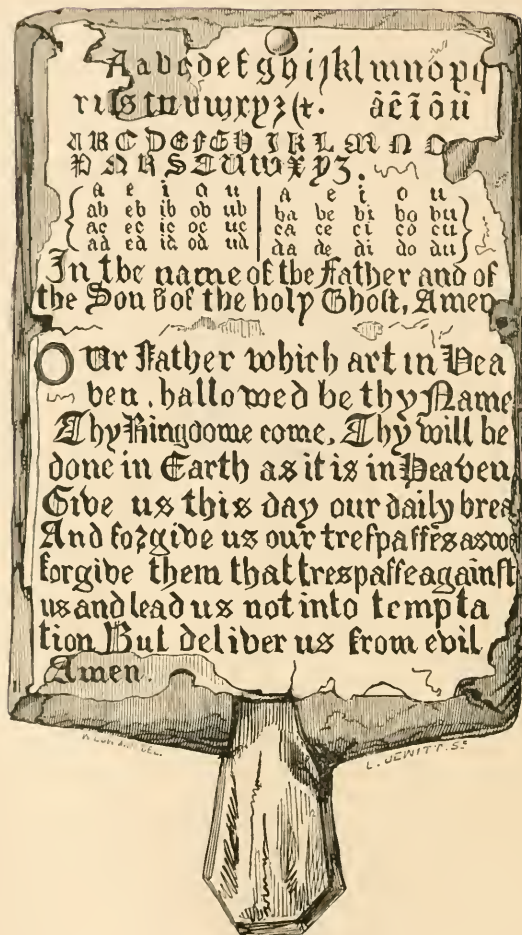 A a b c d e f g h i j k l m n o p q
r ı ſ s t u v w x y z &. ā ē ī ō ū
A B C D E F G H I K L M N O
P Q R S T U W X Y Z.
a e i o u a e i o u
ab eb ib ob ub ba be bi bo bu
ac ec ic oc uc ca ce ci co cu
ad ed id od ud da de di do du
In the name of the Father and of
the Son & of the holy Ghoſt, Amen
Our Father which art in Hea
ven, hallowed be thy Name
Thy Kingdome come, Thy will be
done in Earth as it is in Heaven
Give us this day our daily brea
And forgive us our treſpaſſes as we
forgive them that treſpaſſe againſt
us and lead us not into tempta
tion But deliver us from evil
Amen.
L. JEWITT. Sc